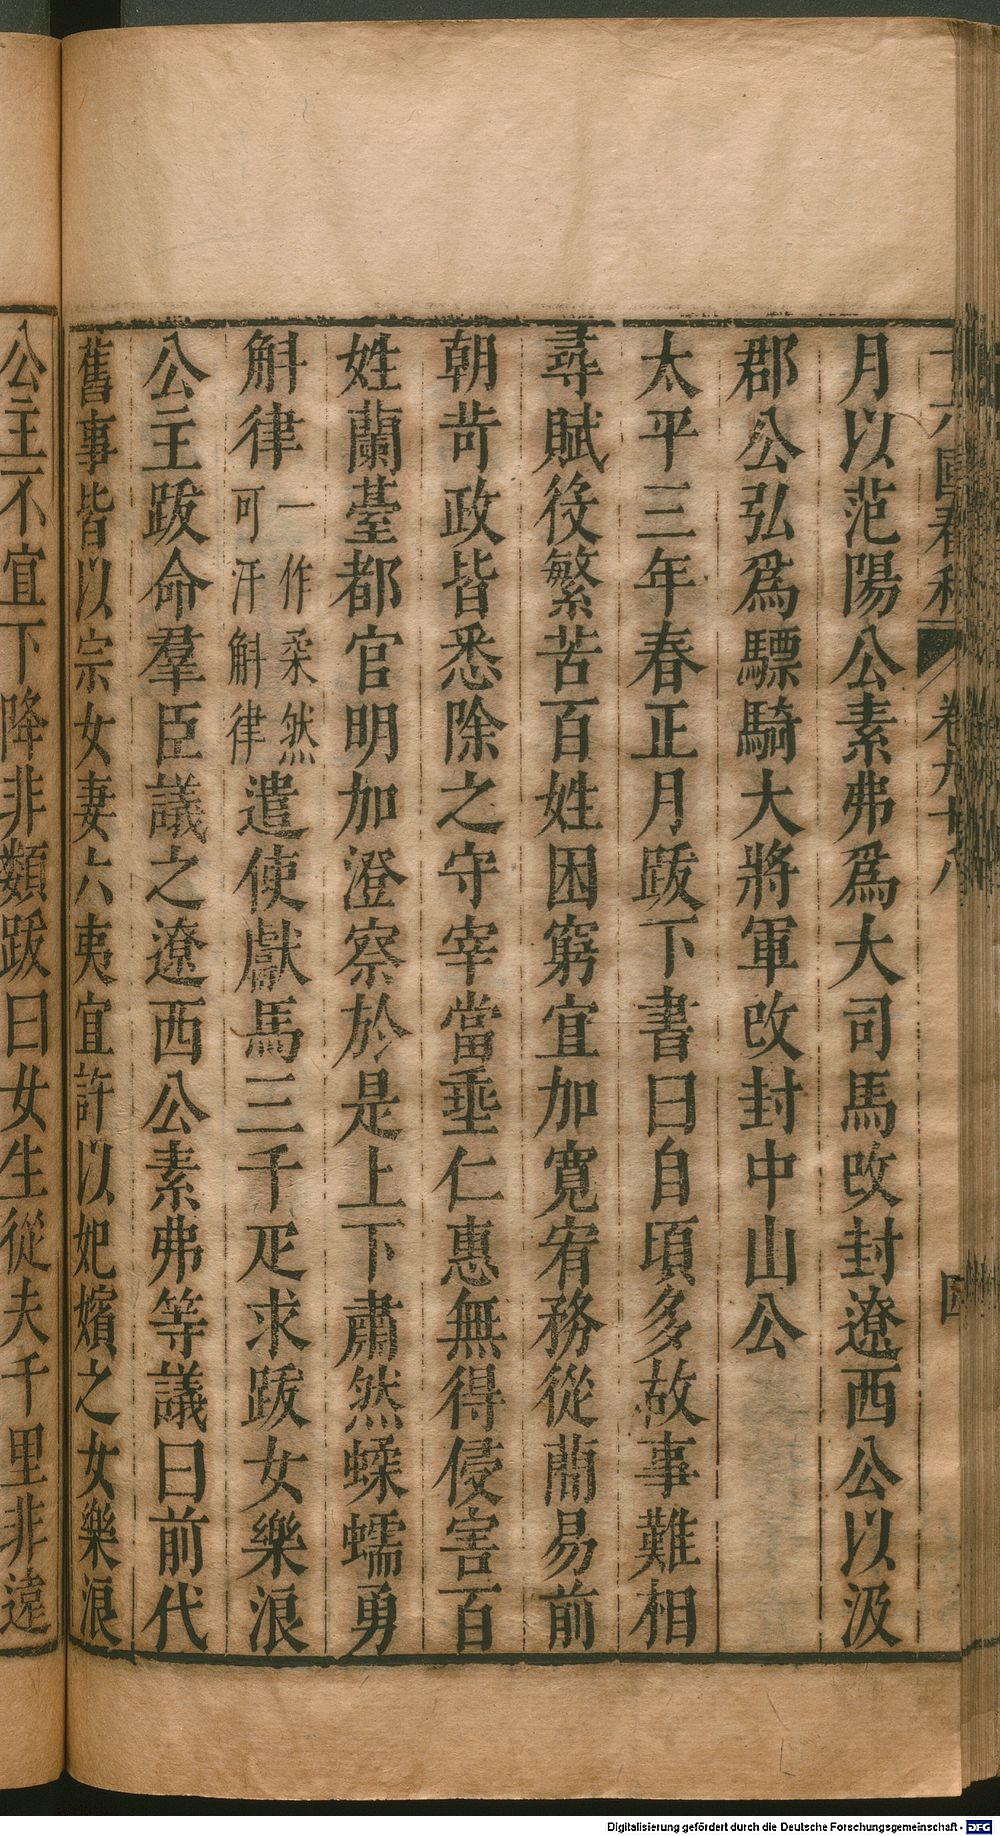 十六國春秋 卷九十八 四
月以范陽公素弗爲大司馬改封遼西公以汲
郡公弘爲驃騎大將軍改封中山公
太平三年春正月跋下書曰自頃多故事難相
尋賦役繁苦百姓困窮宜加寬宥務從蕳易前
朝苛政皆悉除之守宰當垂仁惠無得侵害百
姓蘭薹都官明加澄察於是上下肅然蝚蠕勇
斛律一作柔然可汗斛律遣使獻馬三千疋求跋女樂浪
公主跋命羣臣議之遼西公素弗等議曰前代
舊事皆以宗女妻六夷宜許以妃嬪之女樂浪
公主不宜下降非類跋曰女生從夫千里非遠
Digitalisierung gefördert durch die Deutsche Forschungsgemeinschaft - DFG